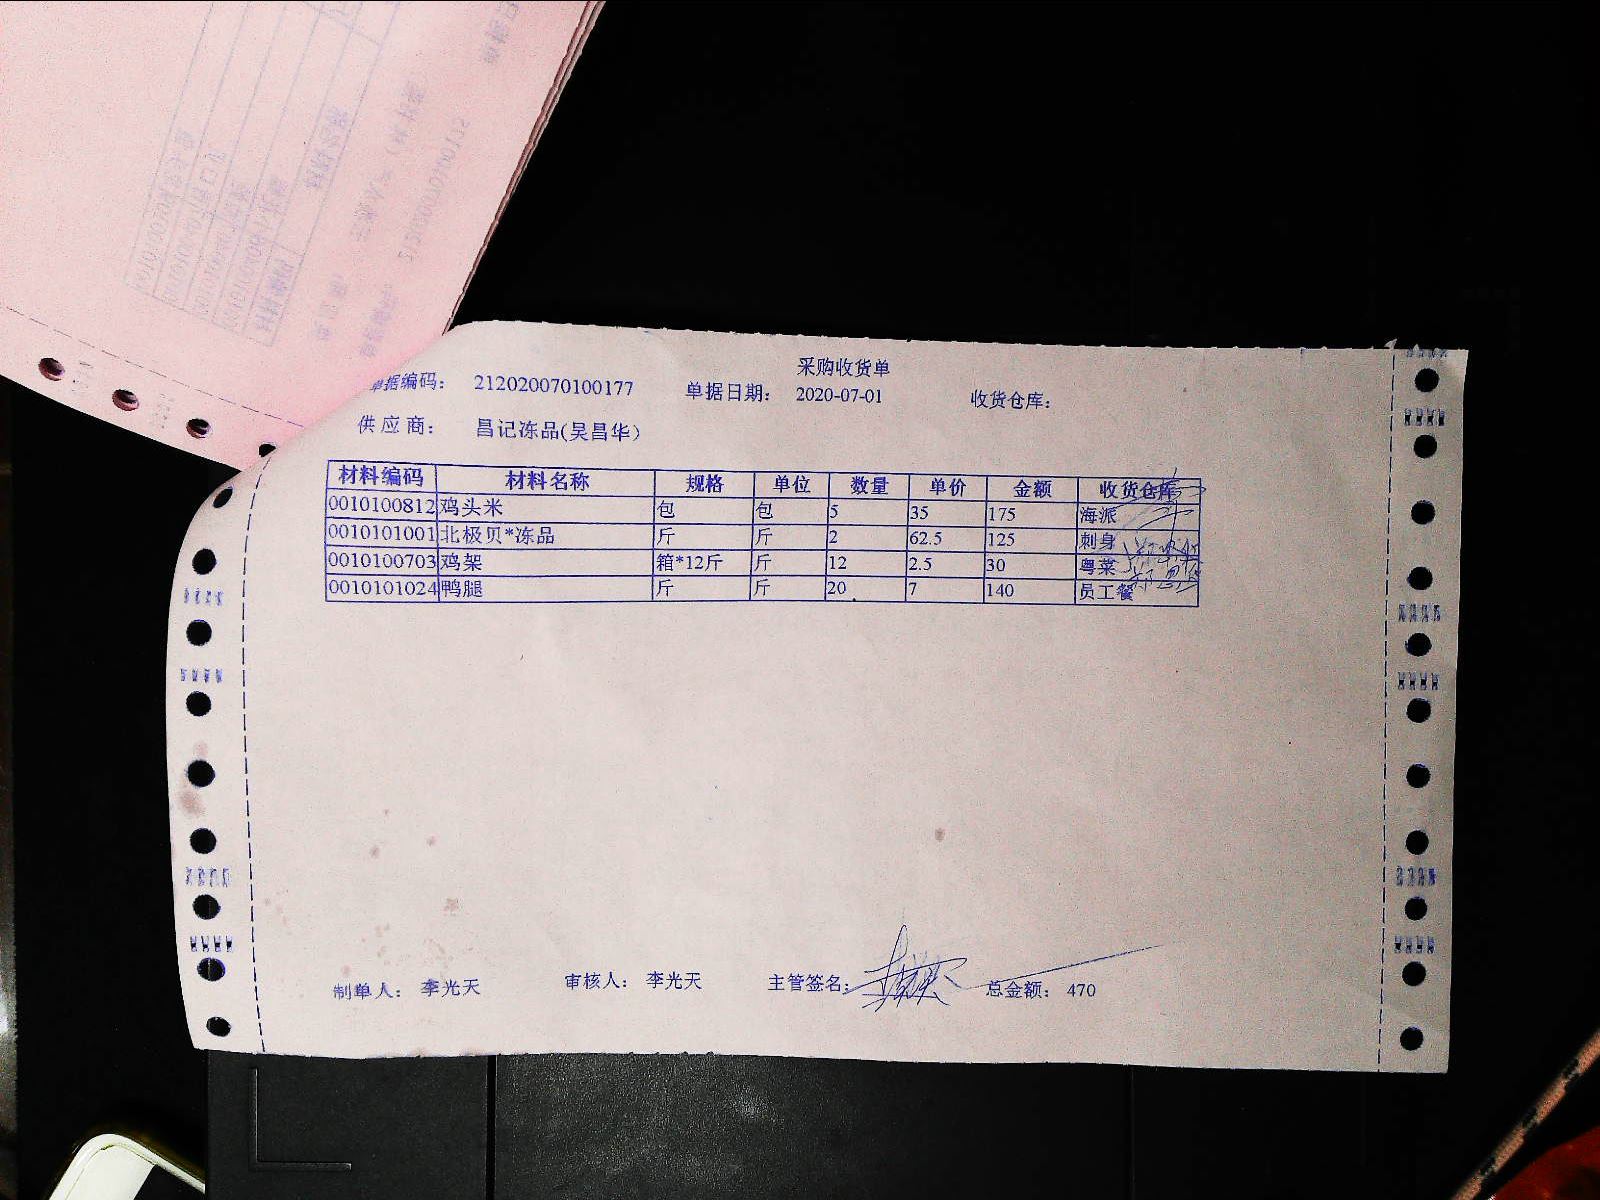 采购收货单
单据编码： 212020070100177 单据日期： 2020-07-01 收货仓库：
供应商： 昌记冻品(吴昌华）
材料编码 材料名称 规格 单位 数量 单价 金额 收货仓库
0010100812 鸡头米 包 包 5 35 175 海派
0010101001 北极贝*冻品 斤 斤 2 62.5 125 刺身
0010100703 鸡架 箱*12斤 斤 12 2.5 30 粤菜
0010101024 鸭腿 斤 斤 20 7 140 员工餐
制单人： 李光天 审核人： 李光天 主管签名： 总金额： 470